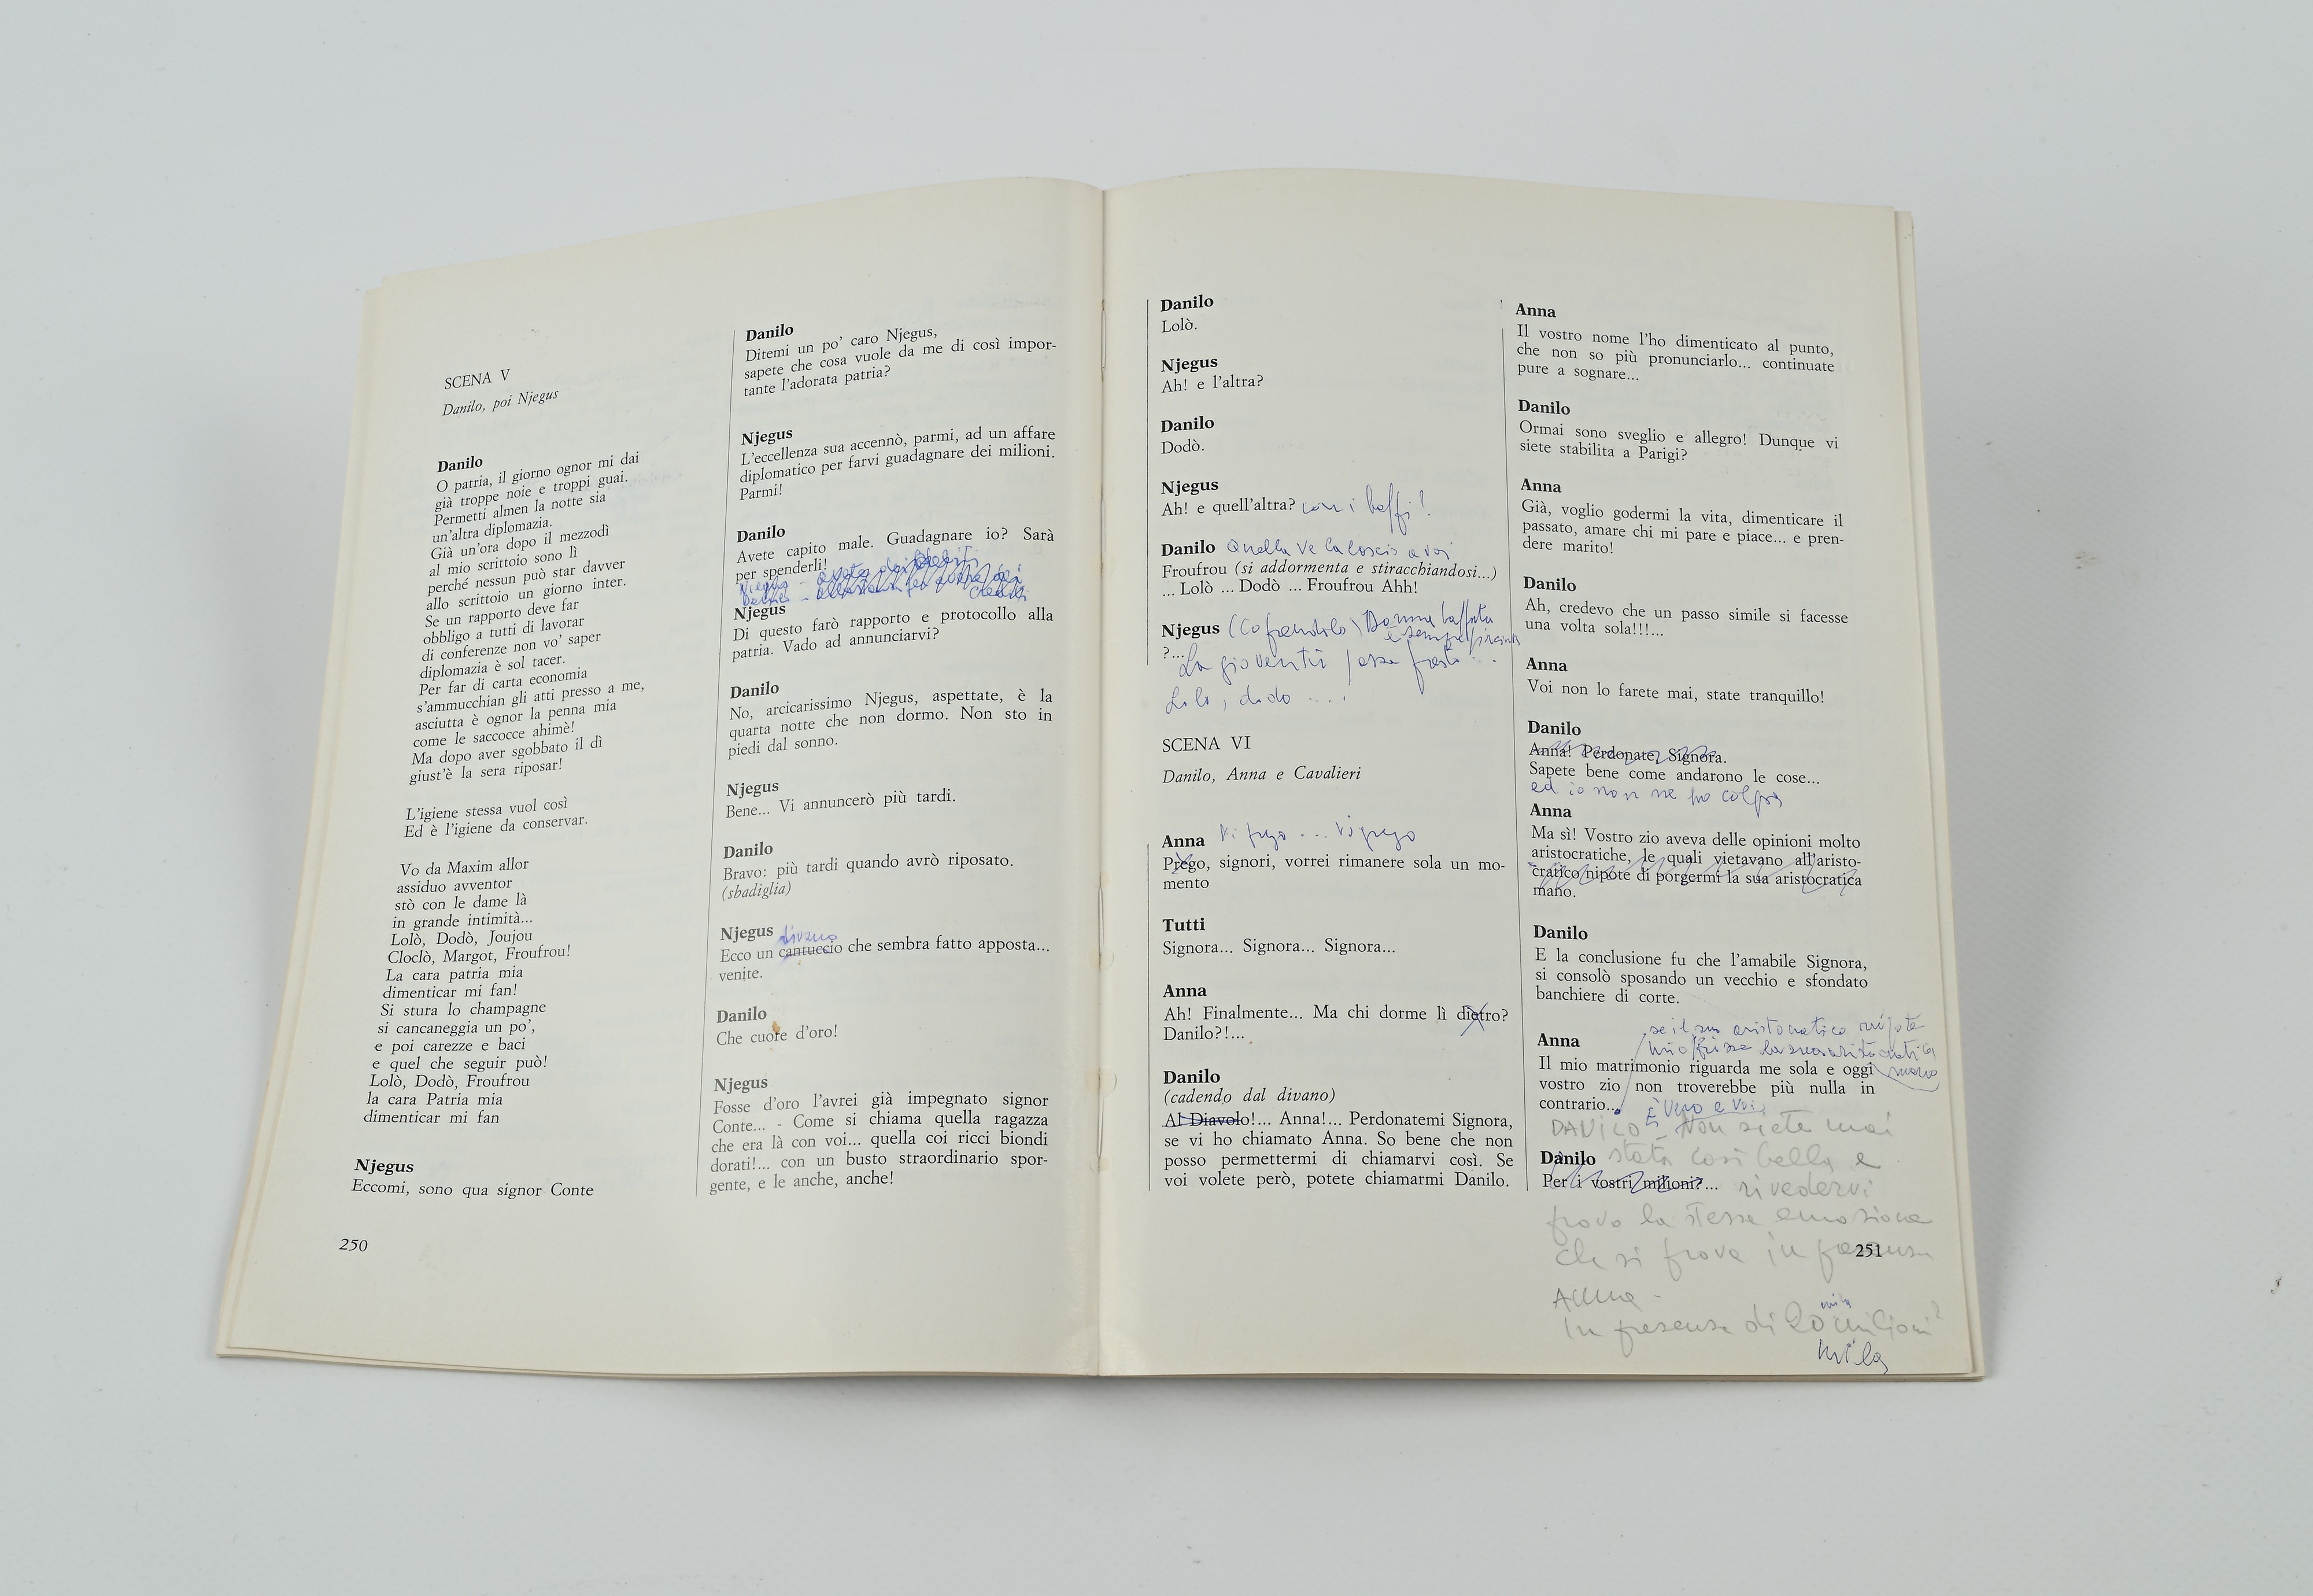 SCENA V
Danilo, poi Njegus
Danilo
O patria, il giorno ognor mi dai
già troppe noie e troppi guai.
Permetti almen la notte sia
un'altra diplomazia.
Già un'ora dopo il mezzodì
al mio scrittoio sono lì
perché nessun può star davver
allo scrittoio un giorno inter.
Se un rapporto deve far
obbligo a tutti di lavorar
di conferenze non vo' saper
diplomazia è sol tacer.
Per far di carta economia
s'ammucchian gli atti presso a me,
asciutta è ognor la penna mia
come le saccocce ahimè!
Ma dopo aver sgobbato il dì
giust'è la sera riposar!
L'igiene stessa vuol così
Ed è l'igiene da conservar.
Vo da Maxim allor
assiduo avventor
stò con le dame là
in grande intimità...
Lolò, Dodò, Joujou
Cloclò, Margot, Froufrou!
La cara patria mia
dimenticar mi fan!
Si stura lo champagne
si cancaneggia un po',
e poi carezze e baci
e quel che seguir può!
Lolò, Dodò, Froufrou
la cara Patria mia
dimenticar mi fan
Njegus
Eccomi, sono qua signor Conte
250
Danilo
Ditemi un po' caro Njegus,
sapete che cosa vuole da me di così impor-
tante l'adorata patria?
Njegus
L'eccellenza sua accennò, parmi, ad un affare
diplomatico per farvi guadagnare dei milioni.
Parmi!
Danilo
Avete capito male. Guadagnare io? Sarà
per spenderli!
Njegus
Di questo farò rapporto e protocollo alla
patria. Vado ad annunciarvi?
Danilo
No, arcicarissimo Njegus, aspettate, è la
quarta notte che non dormo. Non sto in
piedi dal sonno.
Njegus
Bene... Vi annuncerò più tardi.
Danilo
Bravo: più tardi quando avrò riposato.
(sbadiglia)
Njegus
divano
Ecco un cantuccio che sembra fatto apposta...
venite.
Danilo
Che cuore d'oro!
Njegus
Fosse d'oro l'avrei già impegnato signor
Conte... - Come si chiama quella ragazza
che era là con voi... quella coi ricci biondi
dorati!... con un busto straordinario spor-
gente, e le anche, anche!
Danilo
Lolò.
Njegus
Ah! e l'altra?
Danilo
Dodò.
Njegus
Ah! e quell'altra? con i baffi!
Danilo Quella ve la lascio a voi
Froufrou (si addormenta e stiracchiandosi...)
... Lolò ... Dodò ... Froufrou Ahh!
Njegus (coprendolo) Donna baffuta
è sempre
?...
La gioventù
Lolo, dodo ....
SCENA VI
Danilo, Anna e Cavalieri
Anna Vi prego ... Vi prego
Prego, signori, vorrei rimanere sola un mo-
mento
Tutti
Signora... Signora... Signora...
Anna
Ah! Finalmente... Ma chi dorme lì dietro?
Danilo?!...
Danilo
(cadendo dal divano)
Al Diavolo!... Anna!... Perdonatemi Signora,
se vi ho chiamato Anna. So bene che non
posso permettermi di chiamarvi così. Se
voi volete però, potete chiamarmi Danilo.
Anna
Il vostro nome l'ho dimenticato al punto,
che non so più pronunciarlo... continuate
pure a sognare...
Danilo
Ormai sono sveglio e allegro! Dunque vi
siete stabilita a Parigi?
Anna
Già, voglio godermi la vita, dimenticare il
passato, amare chi mi pare e piace... e pren-
dere marito!
Danilo
Ah, credevo che un passo simile si facesse
una volta sola!!!...
Anna
Voi non lo farete mai, state tranquillo!
Danilo
Anna! Perdonate, Signora.
Sapete bene come andarono le cose...
ed io non ne ho colpa
Anna
Ma sì! Vostro zio aveva delle opinioni molto
aristocratiche, le quali vietavano all'aristo-
cratico nipote di porgermi la sua aristocratica
mano.
Danilo
E la conclusione fu che l'amabile Signora,
si consolò sposando un vecchio e sfondato
banchiere di corte.
se il suo aristocratico nipote
Anna
mi offrisse la sua aristocratica
Il mio matrimonio riguarda me sola e oggi mano
vostro zio non troverebbe più nulla in
contrario...
È vero e voi
DANILO - Non siete mai
Danilo stata così bella e
Per i vostri milioni?... rivedervi
provo la stessa emozione
che si prova in presenza
251
Anna -
In presenza di 20 milioni?
mila